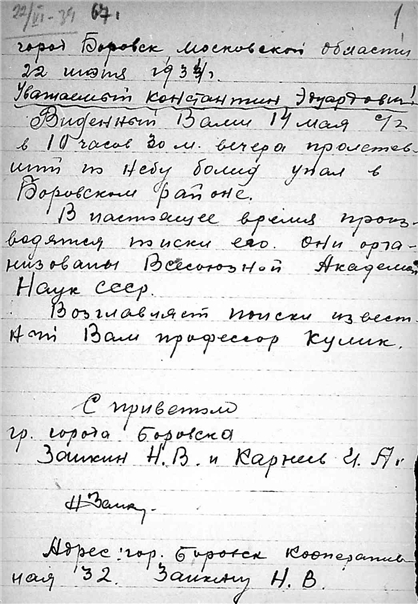 22/VI-34 67.
1
город Боровск Московской области
22 июня 1934г.
Уважаемый Константин Эдуардович!
Виденный Вами 14 мая с/г
в 10 часов 30 м. вечера пролетев-
ший по небу болид упал в
Боровском районе.
В настоящее время произ-
водятся поиски его. Они орга-
низованы Всесоюзной Академ
Наук СССР.
Возглавляет поиски извест-
ный Вам профессор Кулик.
С приветом
гр. города Боровска
Заикин Н.В. и Карнеев И. А.
НЗаик
Адрес: гор. Боровск Кооператив-
ная 32. Заикину Н. В.